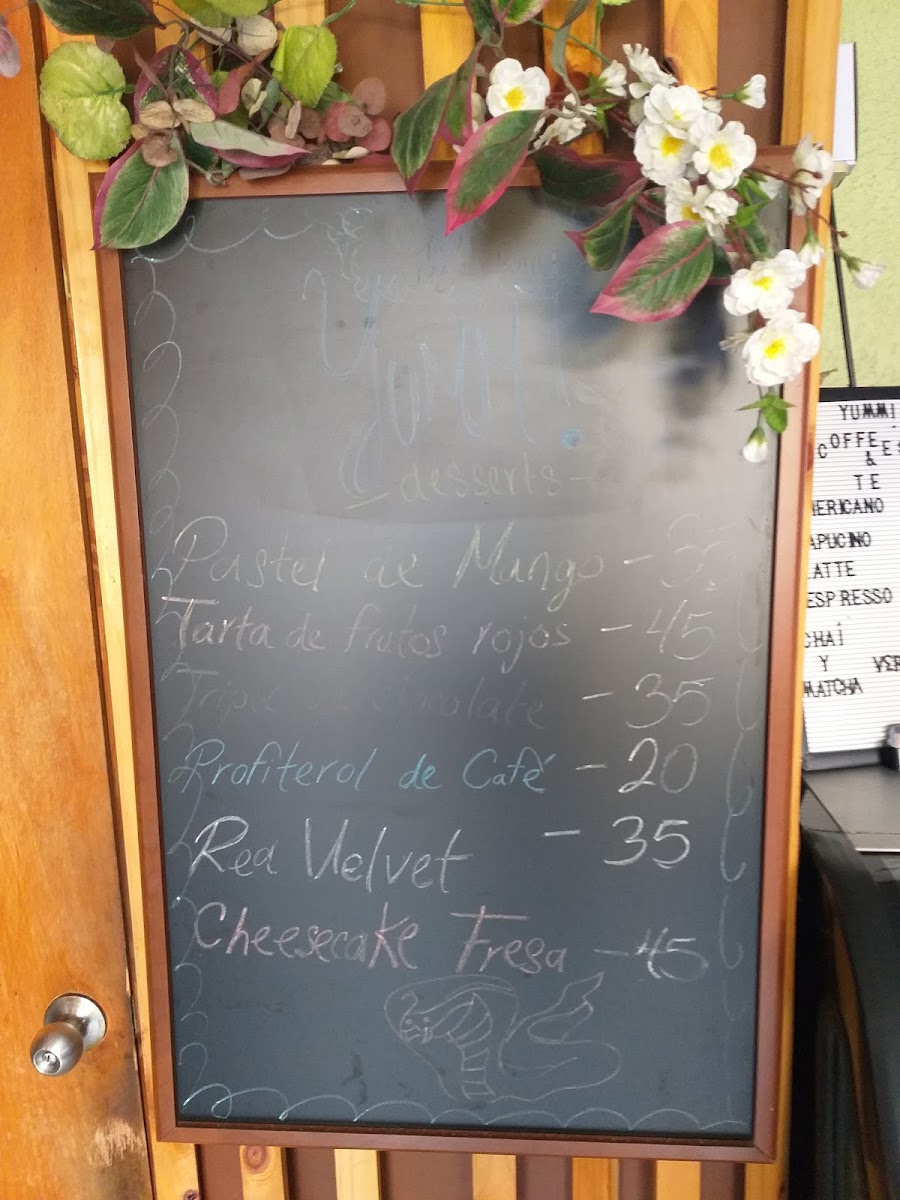 Yumi!
desserts-
Pastel de Mango -
Tarta de frutos rojos - 45
Triple chocolate - 35
Profiterol de Café - 20
Red Velvet - 35
Cheesecake Fresa - 45
YUMMI
COFFEE
&
TE
ERICANO
APUCINO
ATTE
ESPRESSO
CHAÍ
Y VER
MATCHA